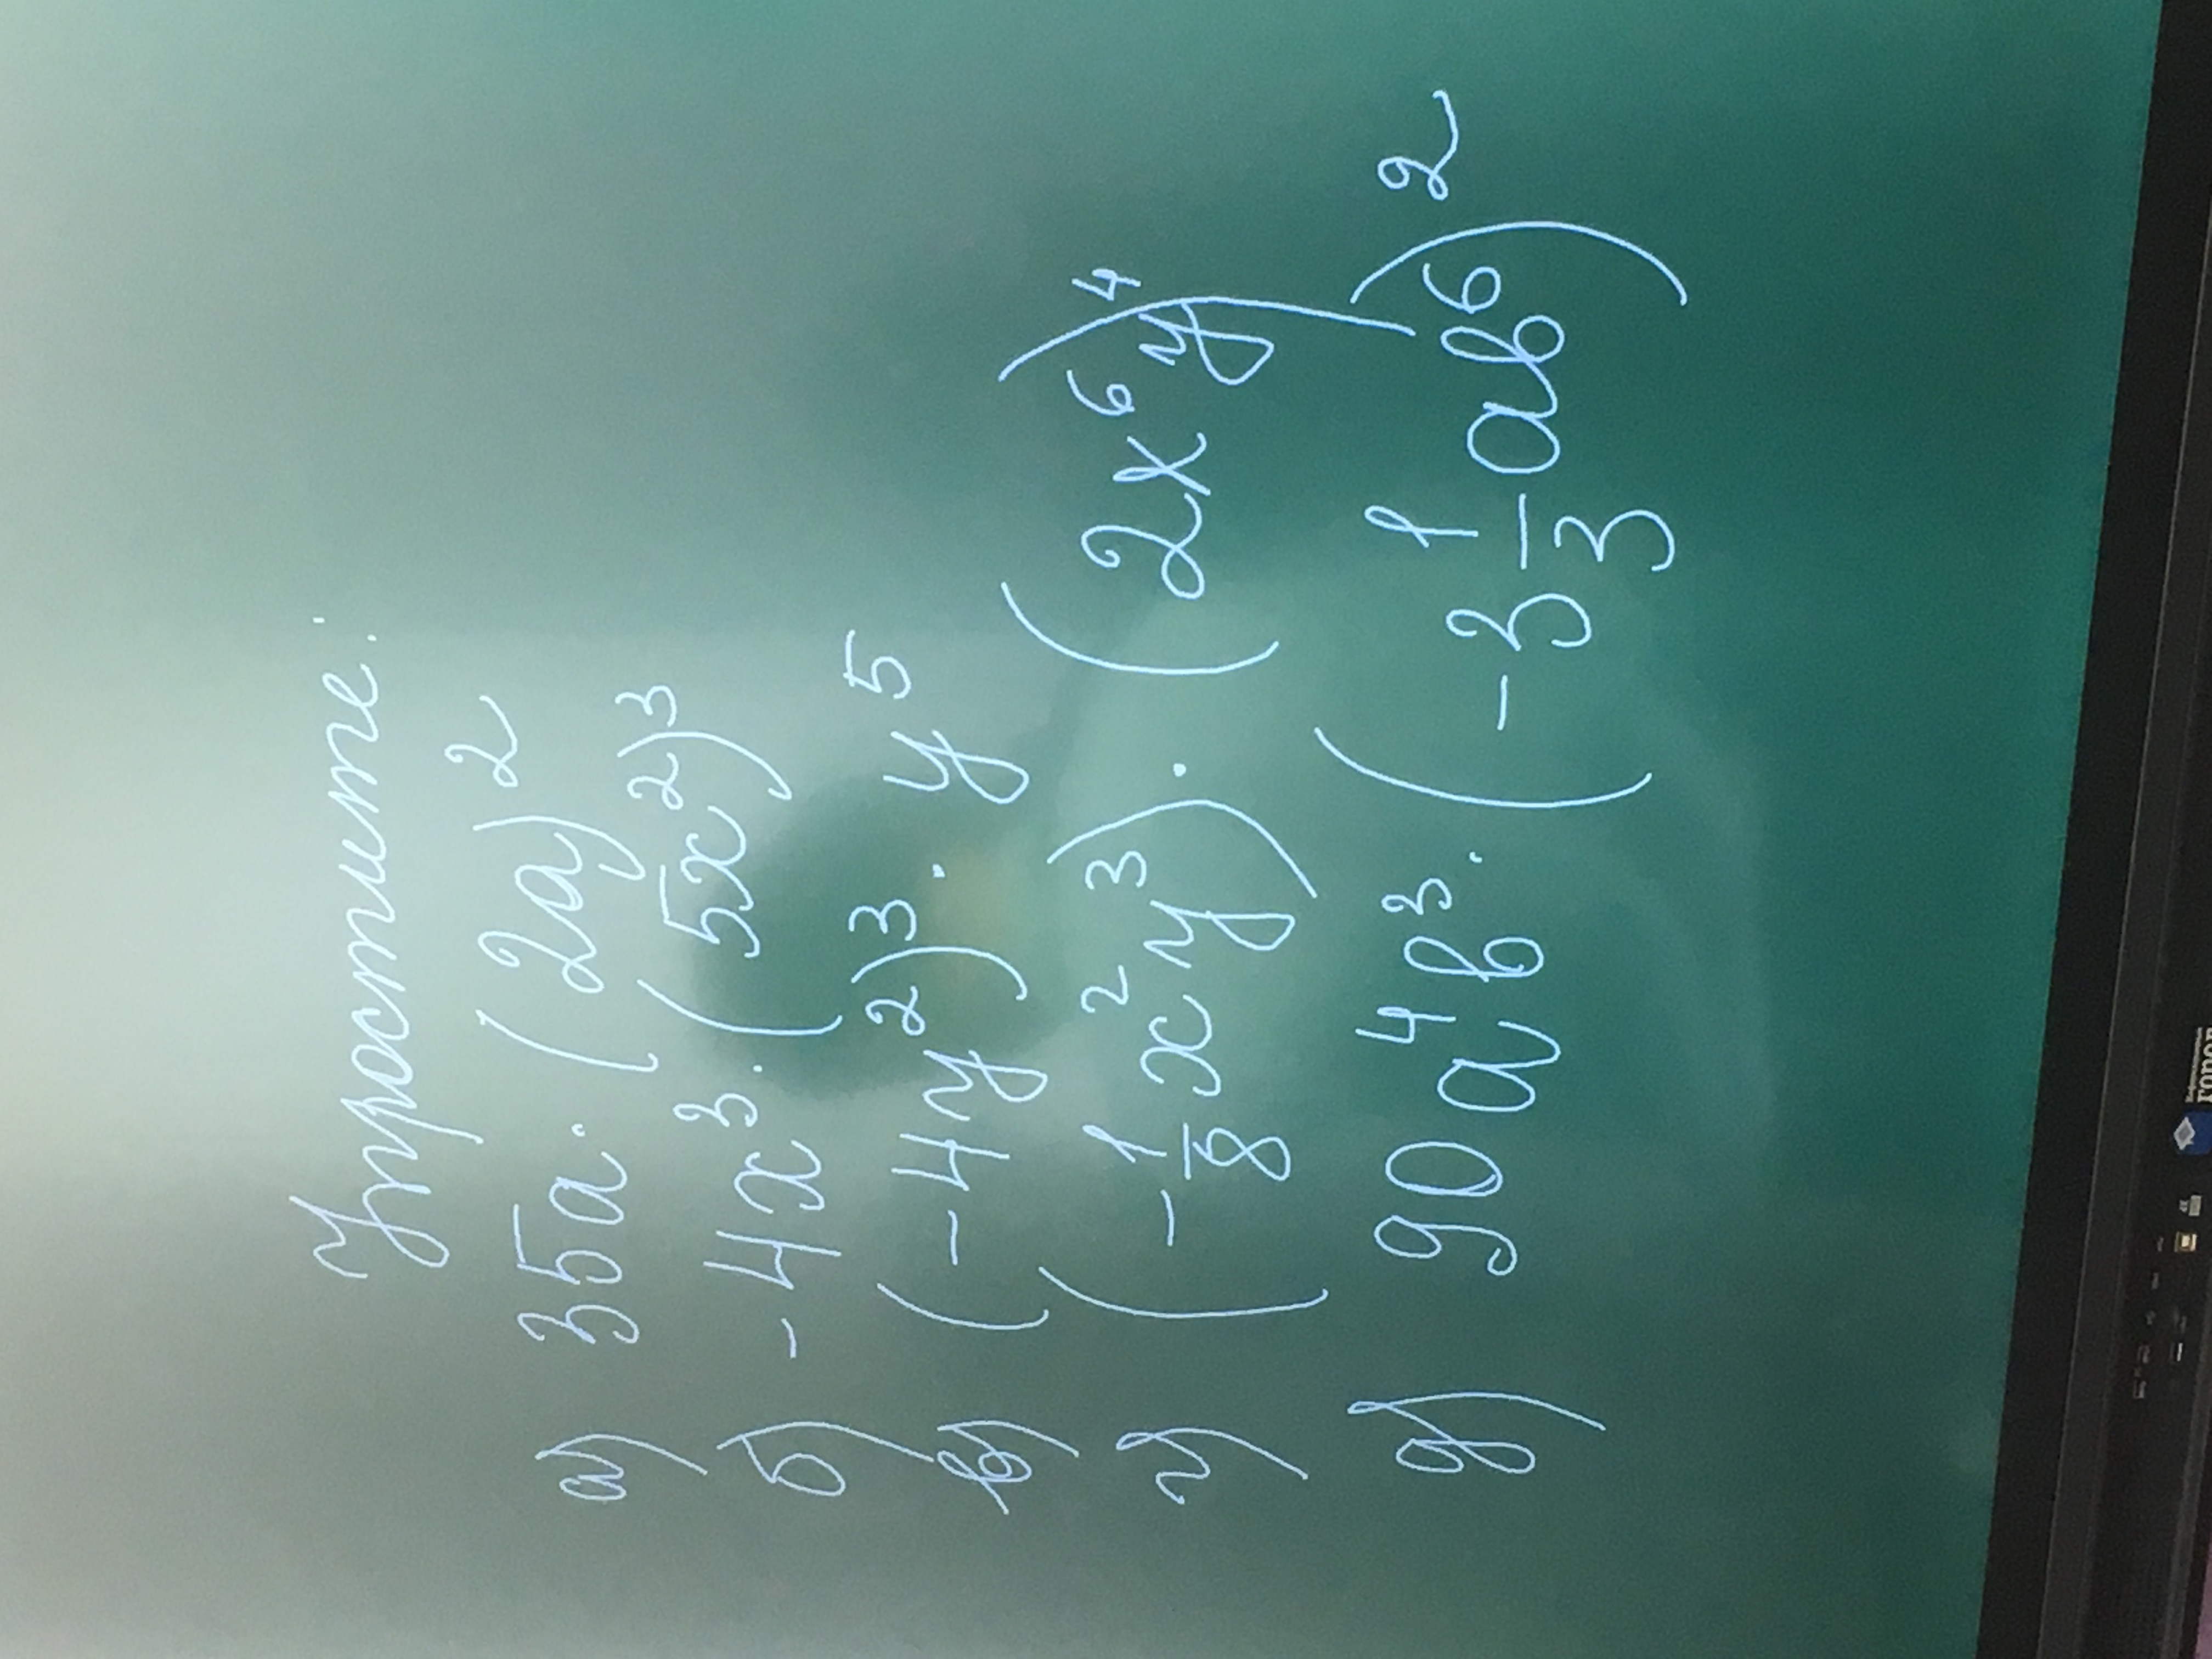 Упростите:
а) 35a · (2a)²
б) -4x³ · (5x²)³
в) (-4y²)³ · y⁵
г) (-1/8 x²y³) · (2x⁶y)⁴
д) 90a⁴b³ · (-3 1/3 ab⁶)²